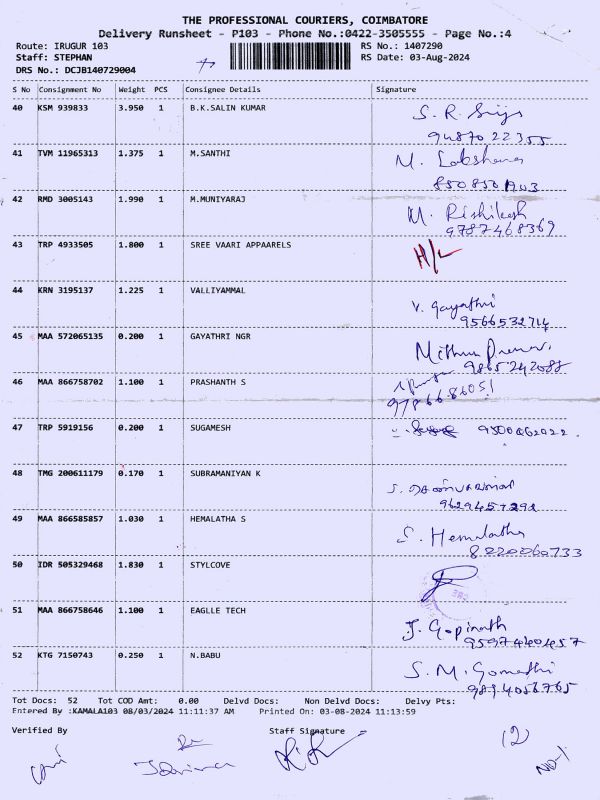 THE PROFESSIONAL COURIERS, COIMBATORE
Delivery Runsheet - P103 - Phone No.:0422-3505555 - Page No.:4
Route: IRUGUR 103 RS No.: 1407290
Staff: STEPHAN RS Date: 03-Aug-2024
DRS No.: DCJB140729004
S No Consignment No Weight PCS Consignee Details Signature
40 KSM 939833 3.950 1 B.K.SALIN KUMAR S. R.
9487022355
41 TVM 11965313 1.375 1 M.SANTHI M.
42 RMD 3005143 1.990 1 M.MUNIYARAJ M. Rishikesh
9787468369
43 TRP 4933505 1.800 1 SREE VAARI APPAARELS H/L
44 KRN 3195137 1.225 1 VALLIYAMMAL V. Gayathri
45 MAA 572065135 0.200 1 GAYATHRI NGR
9865242088
46 MAA 866758702 1.100 1 PRASHANTH S
9786686051
47 TRP 5919156 0.200 1 SUGAMESH
48 TMG 200611179 0.170 1 SUBRAMANIYAN K
49 MAA 866585857 1.030 1 HEMALATHA S S. Hemalatha
8220060733
50 IDR 505329468 1.830 1 STYLCOVE
51 MAA 866758646 1.100 1 EAGLLE TECH J. Gopinath
9597440457
52 KTG 7150743 0.250 1 N.BABU S. M. Gomathi
9894056765
Tot Docs: 52 Tot COD Amt: 0.00 Delvd Docs: Non Delvd Docs: Delvy Pts:
Entered By :KAMALA103 08/03/2024 11:11:37 AM Printed On: 03-08-2024 11:13:59
Verified By Staff Signature
(2)
NO-1